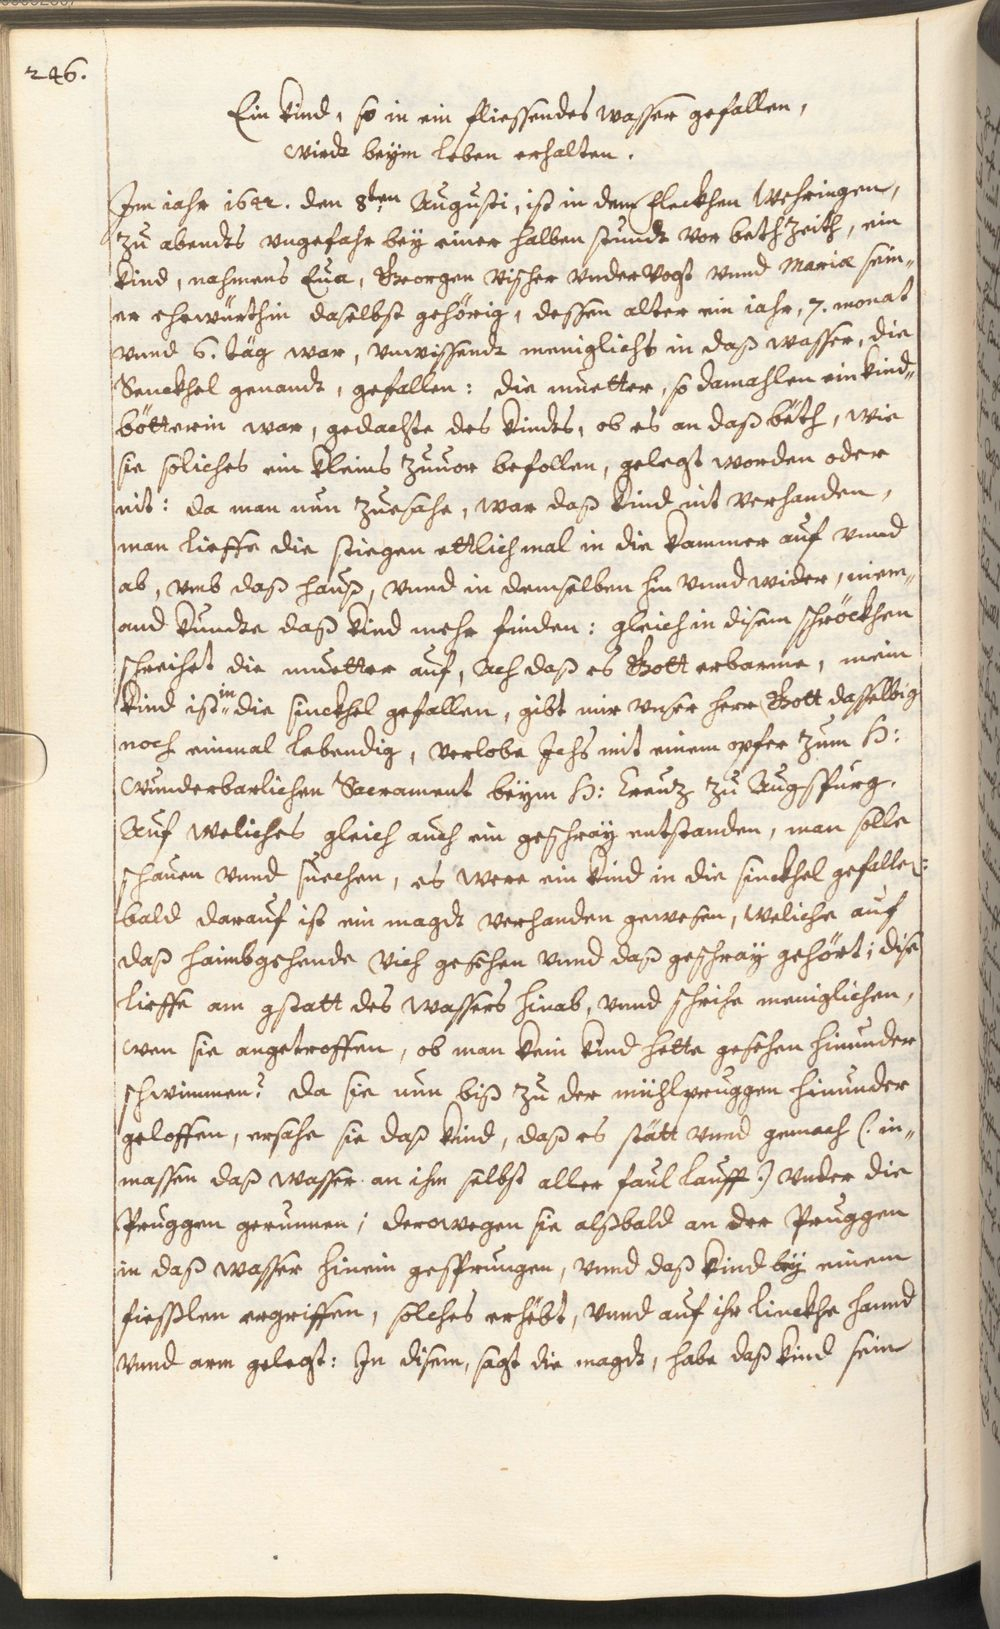 246.
Ein kind, so in ein fliessendes wasser gefallen,
wirdt beÿm leben erhalten.
Im iahr 1642. den 8ten Augusti, ist in dem fleckhen Wehringen,
zu abendts vngefahr beÿ einer halben stundt vor bethzeith, ein
kind, nahmens Eua, Georgen Vischer vndervogt vnnd Maria sein„
er ehewürthin daselbst gehörig, dessen alter ein iahr, 7. monat
vnnd 6. täg war, vnwissendt meniglichs in daß wasser, die
Senckhel genandt, gefallen: die muetter, so damahlen ein kind„
bötterin war, gedachte des kindts, ob es an daß böth, wie
sie soliches ein kleins zuuor befollen, gelegt worden oder
nit: da man nun zuesahe, war daß kind nit verhanden,
man lieffe die stiegen ettlich mal in die kammer auf vnnd
ab, vmb daß hauß, vnnd in demselben hin vnnd wider, niem„
and kundte daß kind mehr finden: gleich in disem schröckhen
schreihet die muetter auf, Ach daß es Gott erbarme, mein
kind ist in die sinckhel gefallen, gibt mir vnser herr Gott dasselbig
noch einmal lebendig, verlobe Ichs mit einem opfer zum H:
Wunderbarlichen Sacrament beÿm H: Creutz zu Augspurg.
Auf weliches gleich auch ein geschraÿ entstanden, man solle
schauen vnnd suechen, es were ein kind in die sinckhel gefallen:
bald darauf ist ein magdt verhanden gewesen, weliche auf
daß haimbgehende vich gesehen vnnd daß geschraÿ gehört; dise
lieffe am gstatt des wassers hinab, vnnd schrihe meniglichen,
wen sie angetroffen, ob man kein kind hette gesehen hinunder
schwimmen? da sie nun biß zu der mühlpruggen hinunder
geloffen, ersahe sie daß kind, daß es stätt vnnd gemach (: in„
massen daß wasser an ihm selbst aller faul lauff :) vnder die
Pruggen gerunnen; derowegen sie alßbald an der Pruggen
in daß wasser hinein gesprungen, vnnd daß kind beÿ einem
fiesslen ergriffen, solches erhebt, vnnd auf ihr linckhe hannd
vnnd arm gelegt: In disem, sagt die magdt, habe daß kind sein